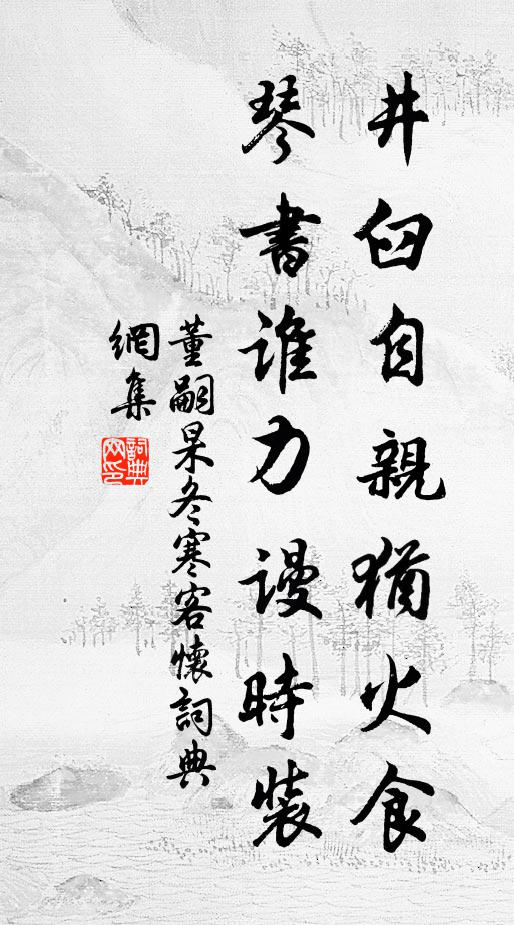 井臼自親猶火食
琴書誰力謾時裝
董嗣杲冬寒客懷詞典
網集
詞典網印